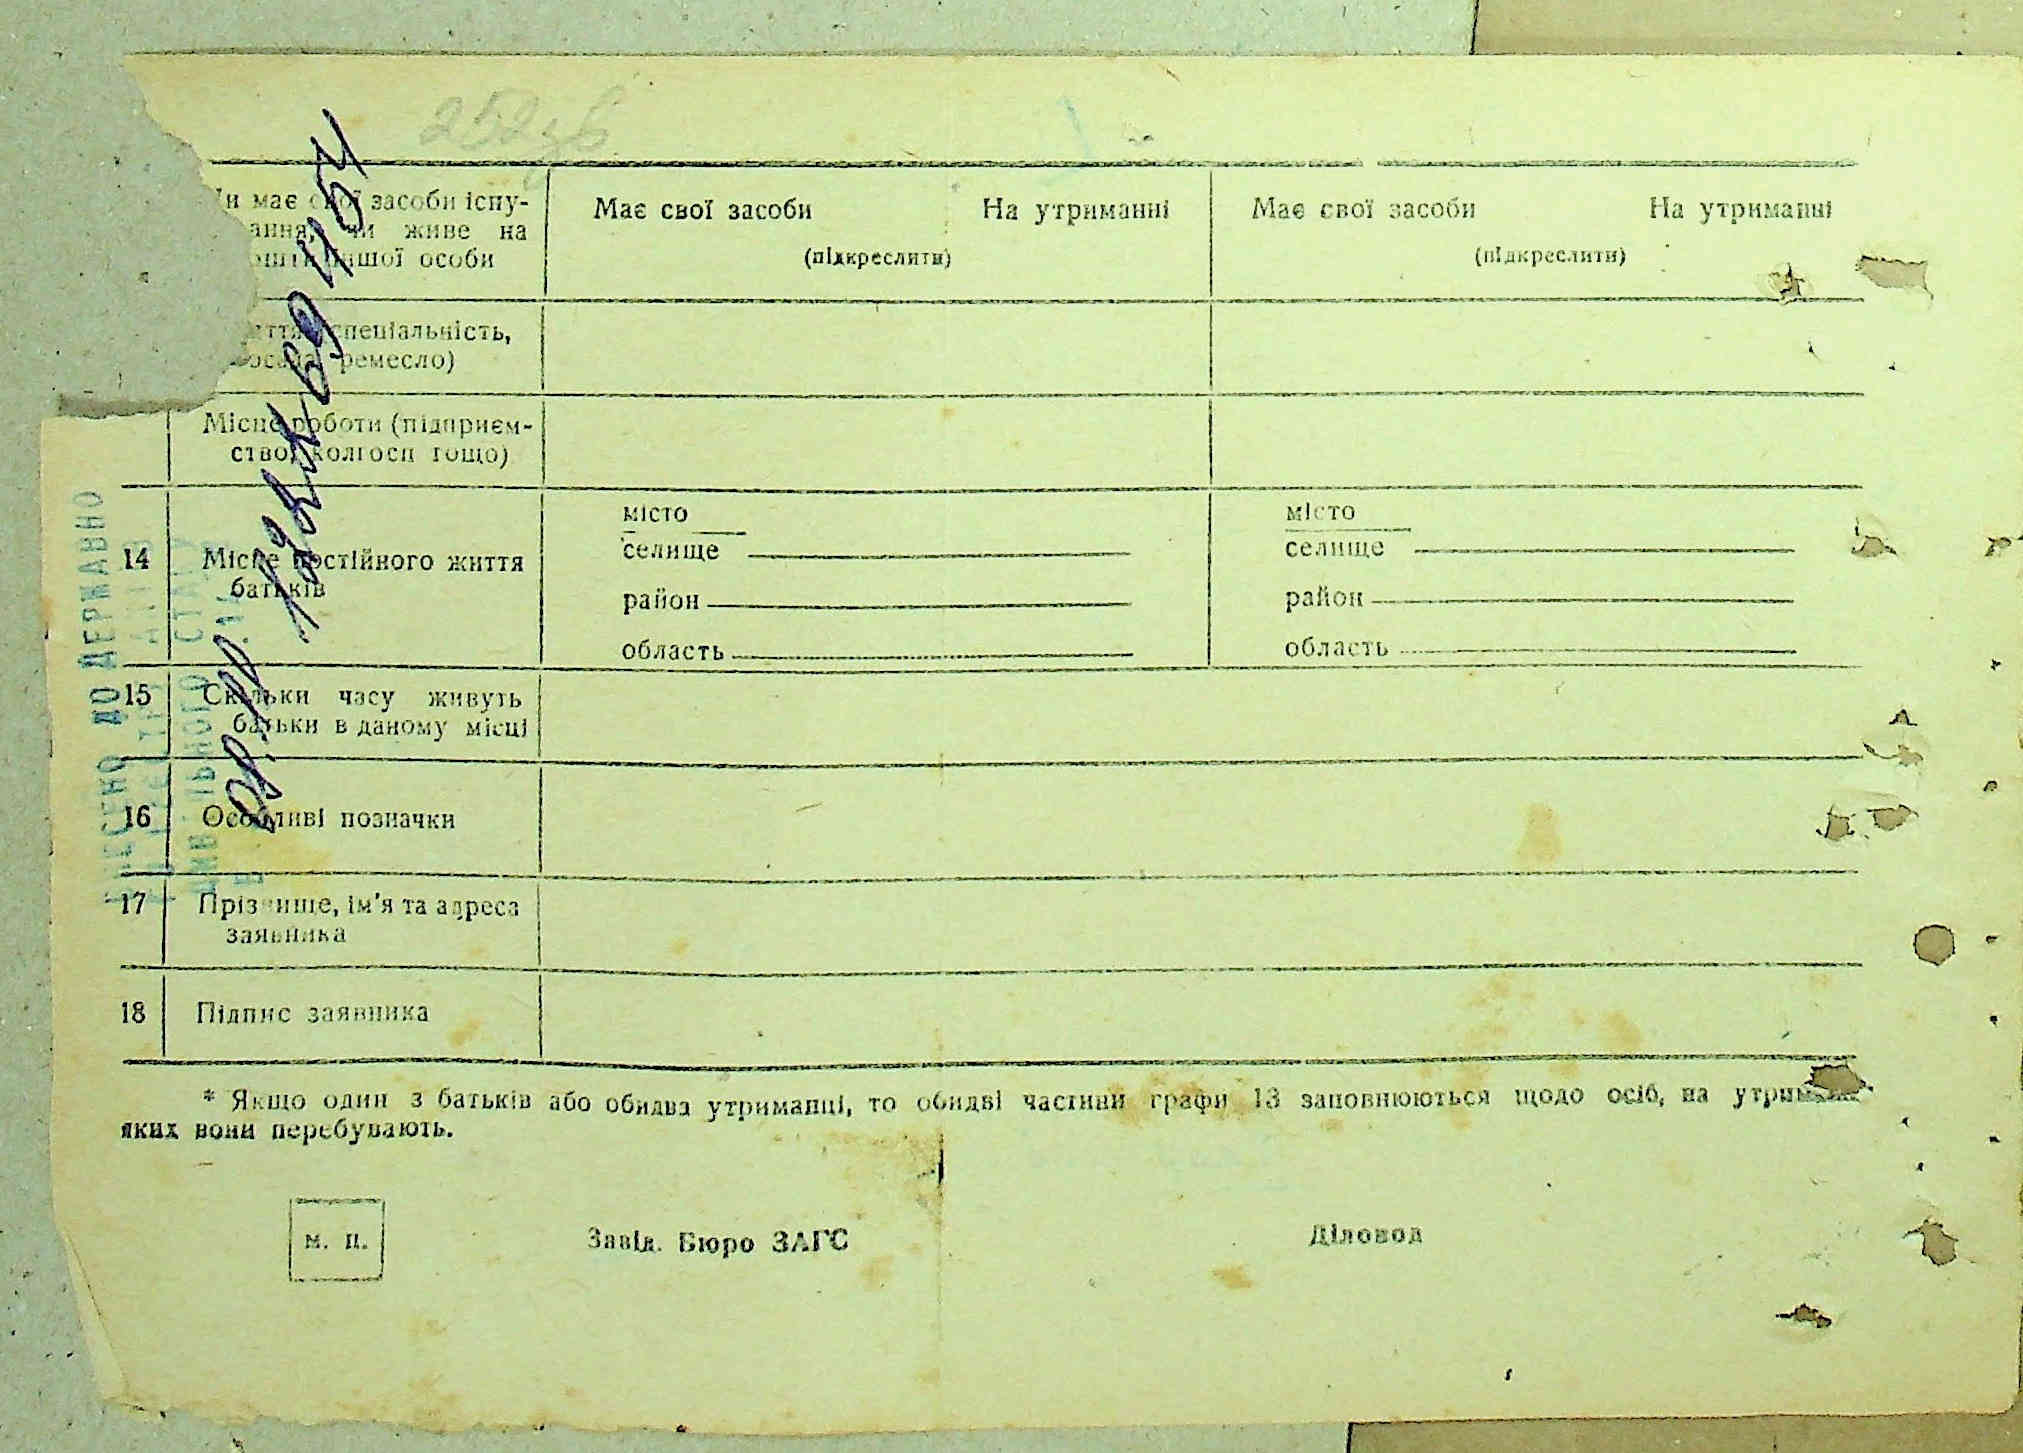 252 зв
має свої засоби існу-
чи живе на
іншої особи
Має свої засоби На утриманні
(підкреслити)
Має свої засоби На утриманні
(підкреслити)
спеціальність,
ремесло)
Місце роботи (підприєм-
ство, колгосп тощо)
14 Місце постійного життя
батьків
місто
селище
район
область
місто
селище
район
область
15 Скільки часу живуть
батьки в даному місці
16 Особливі позначки
17 Прізвище, ім'я та адреса
заявника
18 Підпис заявника
* Якщо один з батьків або обидва утриманці, то обидві частини графи 13 заповнюються щодо осіб, на
яких вони перебувають.
м. п.
Завід. Бюро ЗАГС
Діловод
ВНЕСЕНО ДО ДЕРЖАВНО